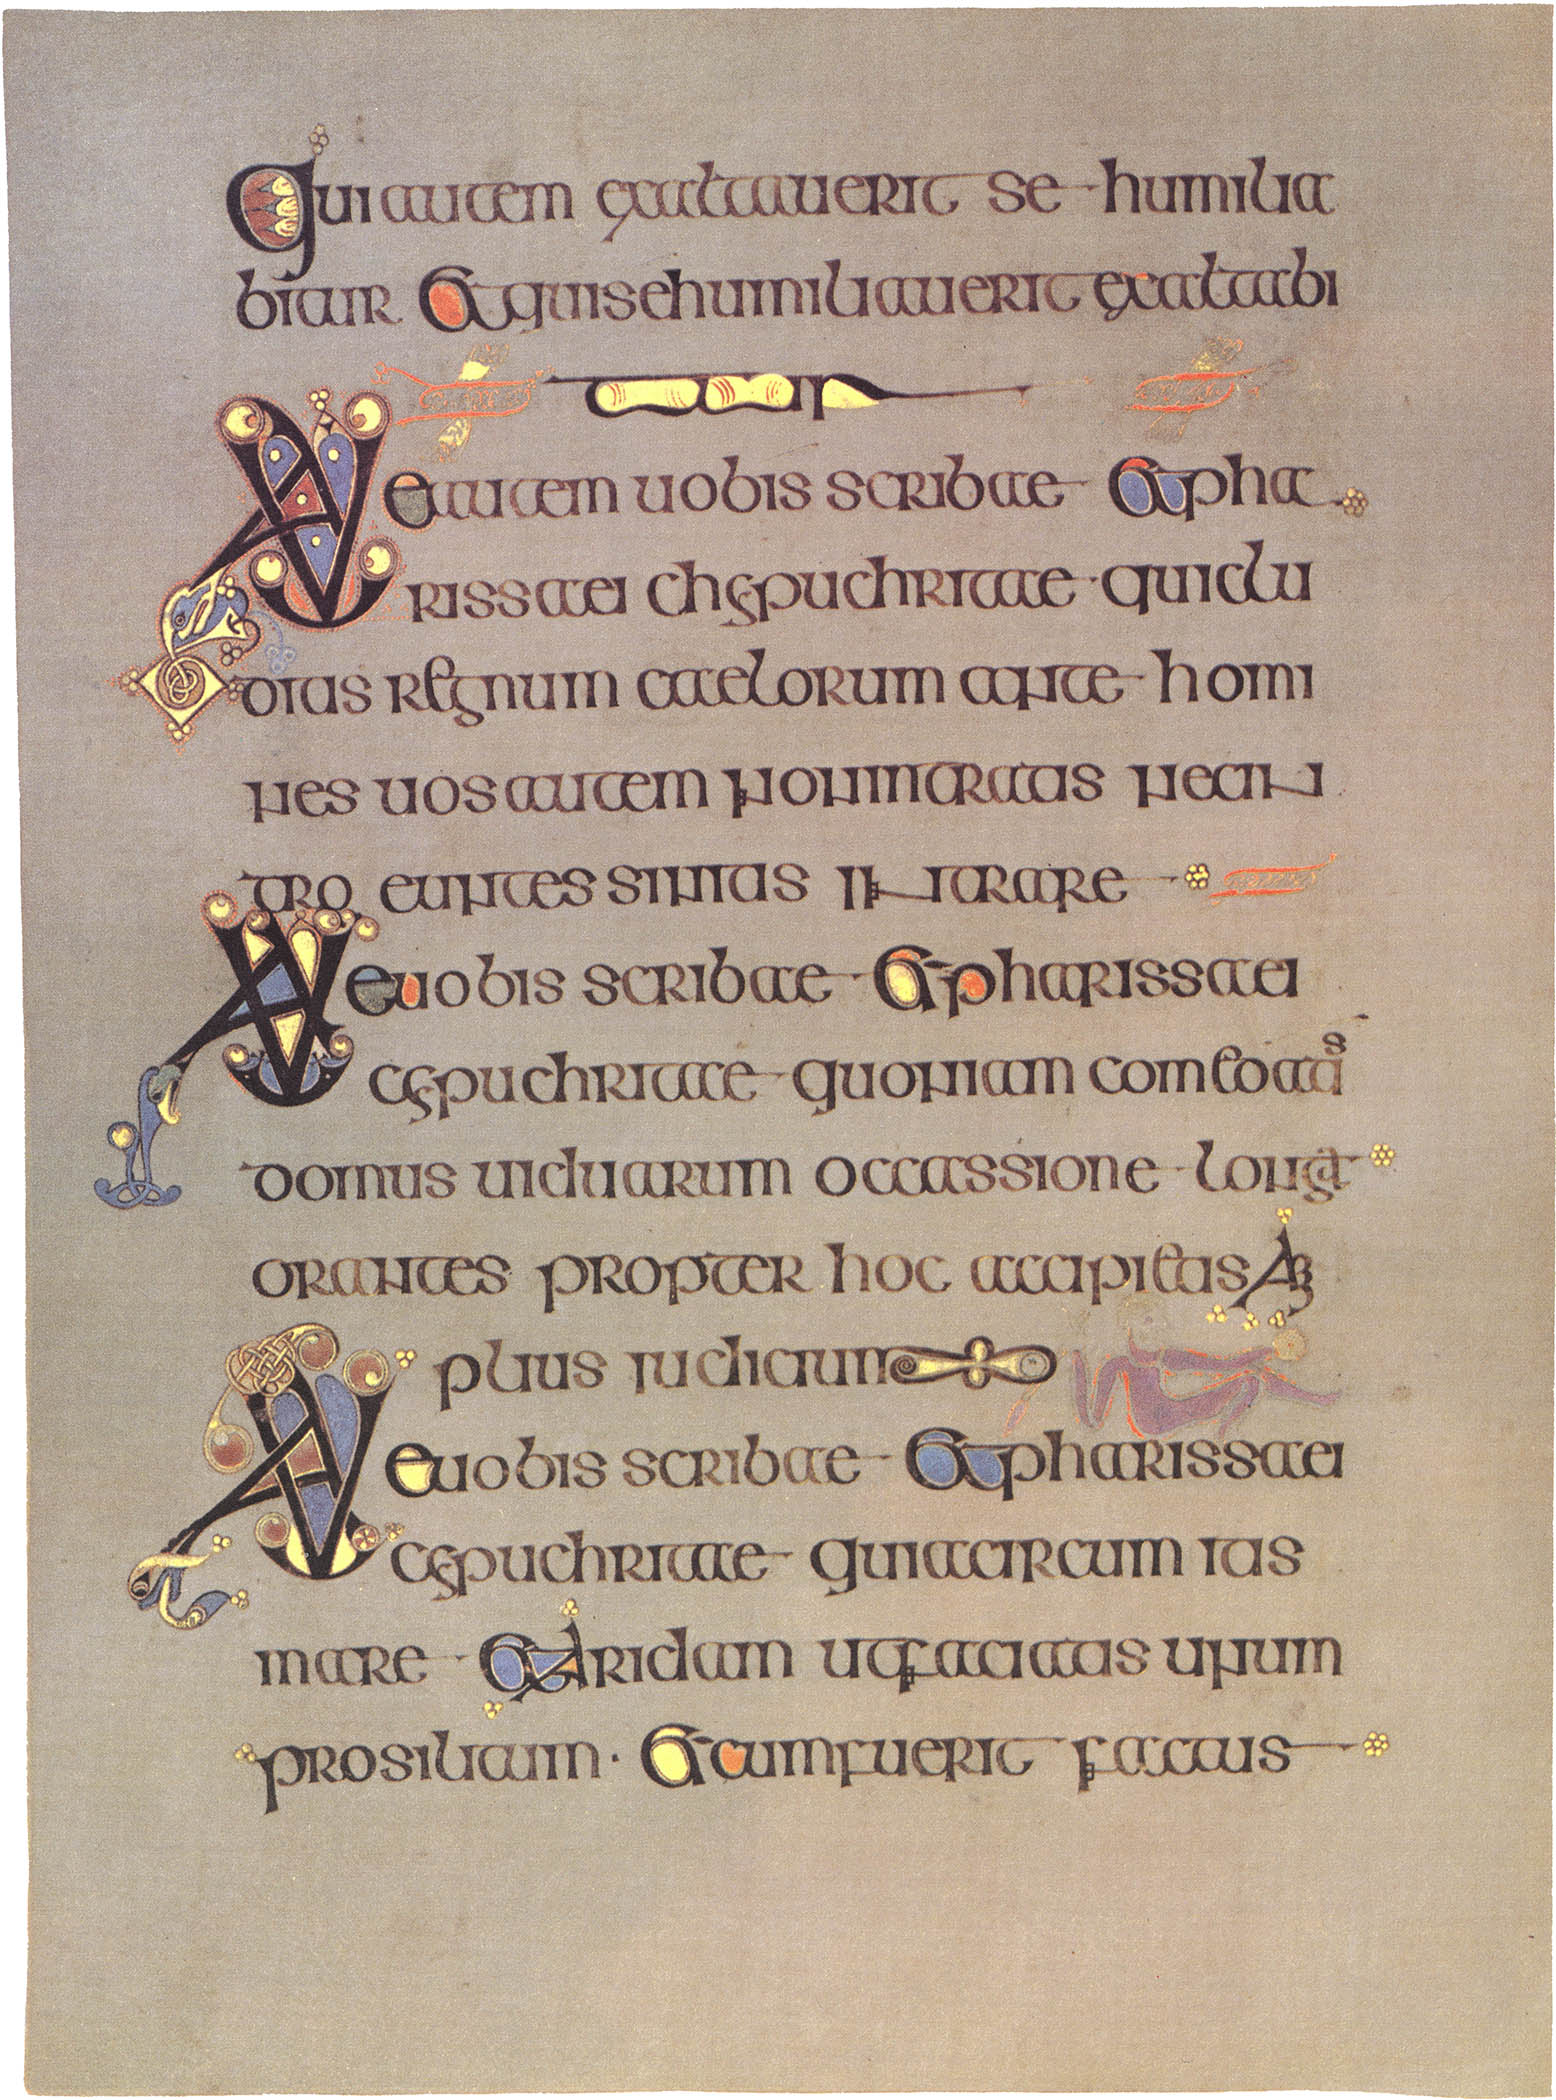 Qui autem exaltauerit se humilia
bitur Et qui se humiliauerit exaltabi
tur
Vae autem uobis scribae Et pha
rissaei chypuchritae qui clu
ditis regnum caelorum ante homi
nes uos autem non intratis nec in
tro euntes sinitis intrare
Vae uobis scribae Et pharissaei
cypuchritae quoniam comeditis
domus uiduarum occassione longa
orantes propter hoc accipietis Am
plius iudicium
Vae uobis scribae Et pharissaei
cypuchritae quia circum itis
mare Et Aridam ut faciatis unum
prosilitum · Et cum fuerit factus